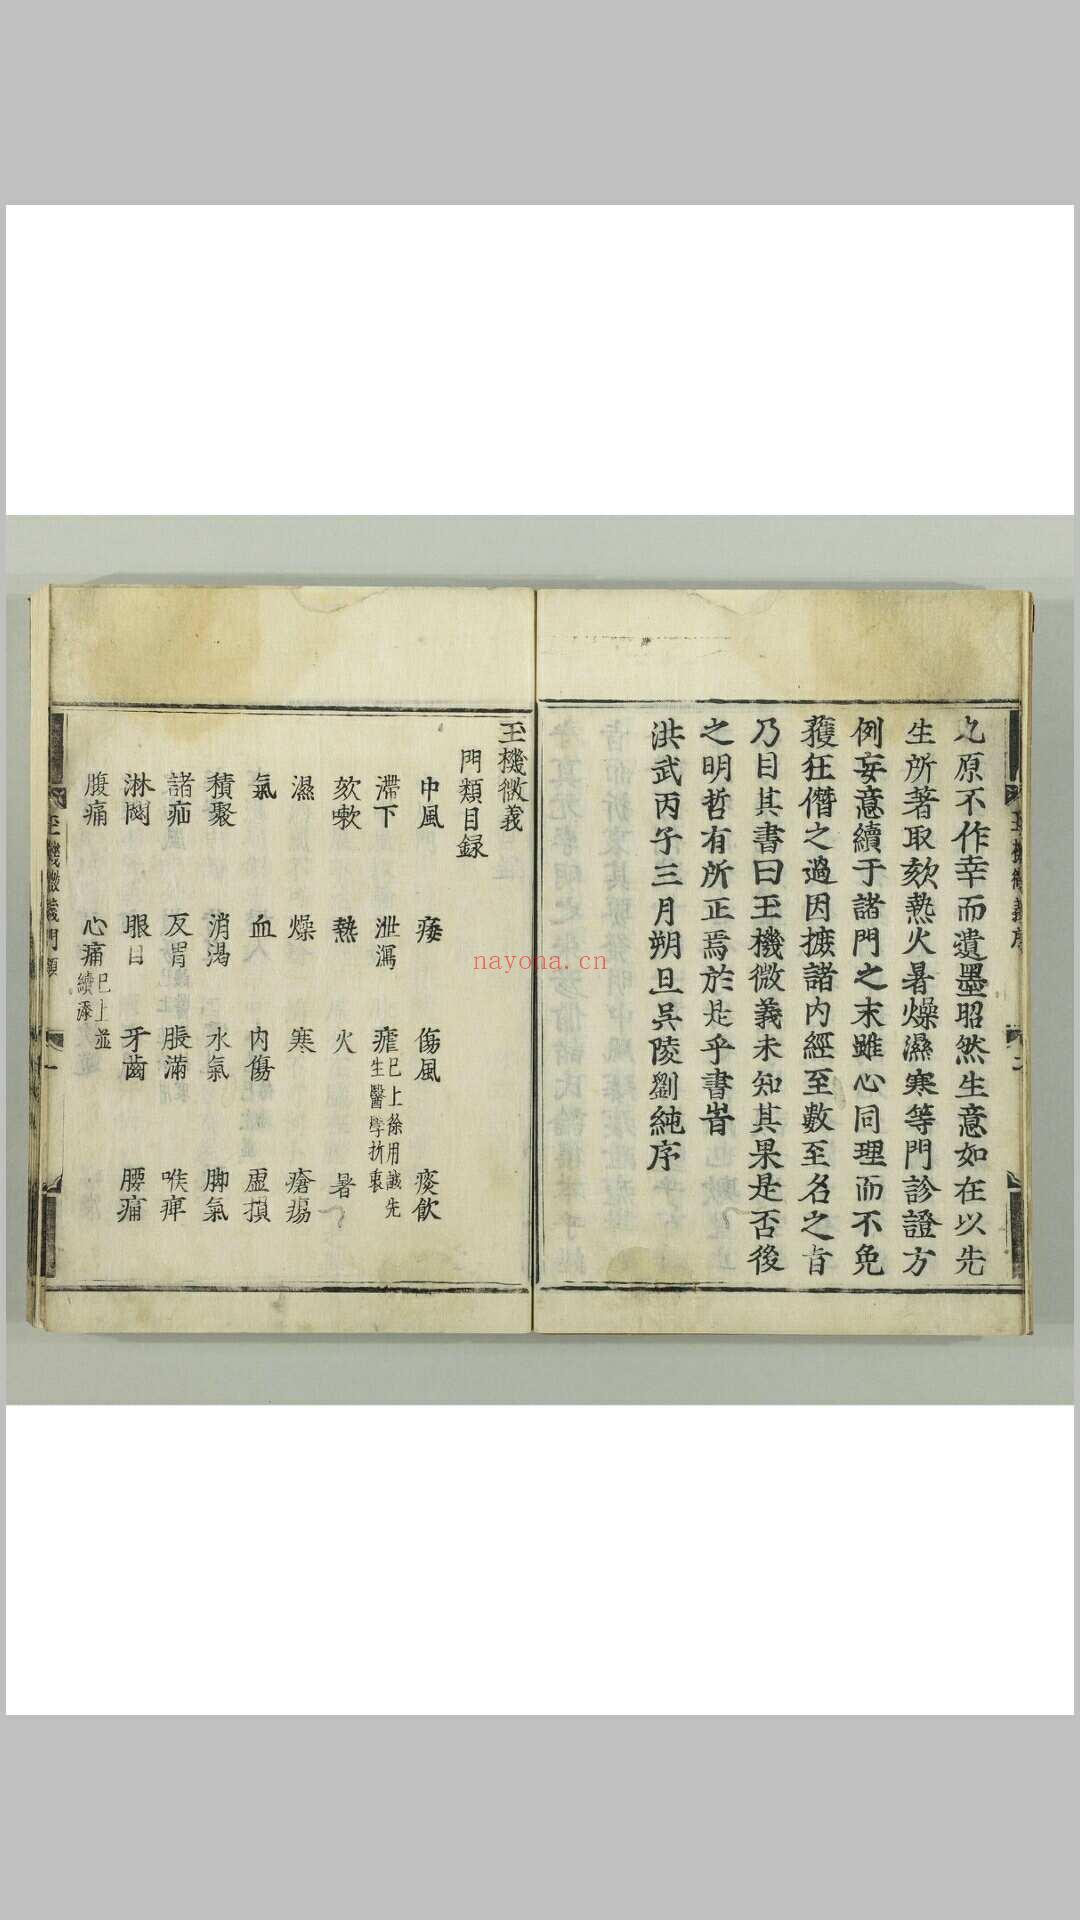 之原不作幸而遺墨昭然生意如在以先
生所著取欬熱火暑燥濕寒等門診證方
例妄意續于諸門之末雖心同理而不免
獲狂僭之過因摭諸內經至數至名之旨
乃目其書曰玉機微義未知其果是否後
之明哲有所正焉於是乎書旹
洪武丙子三月朔旦吳陵劉純序
玉機微義
門類目録
中風 痿 傷風 痰飲
滯下 泄瀉 瘧 已上徐用誠先生醫學折衷
欬嗽 熱 火 暑
濕 燥 寒 瘡瘍
氣 血 內傷 虛損
積聚 消渴 水氣 脚氣
諸疝 反胃 脹滿 喉痺
淋閟 眼目 牙齒 腰痛
腹痛 心痛 已上並續添
玉機微義門類 一
nayona.cn